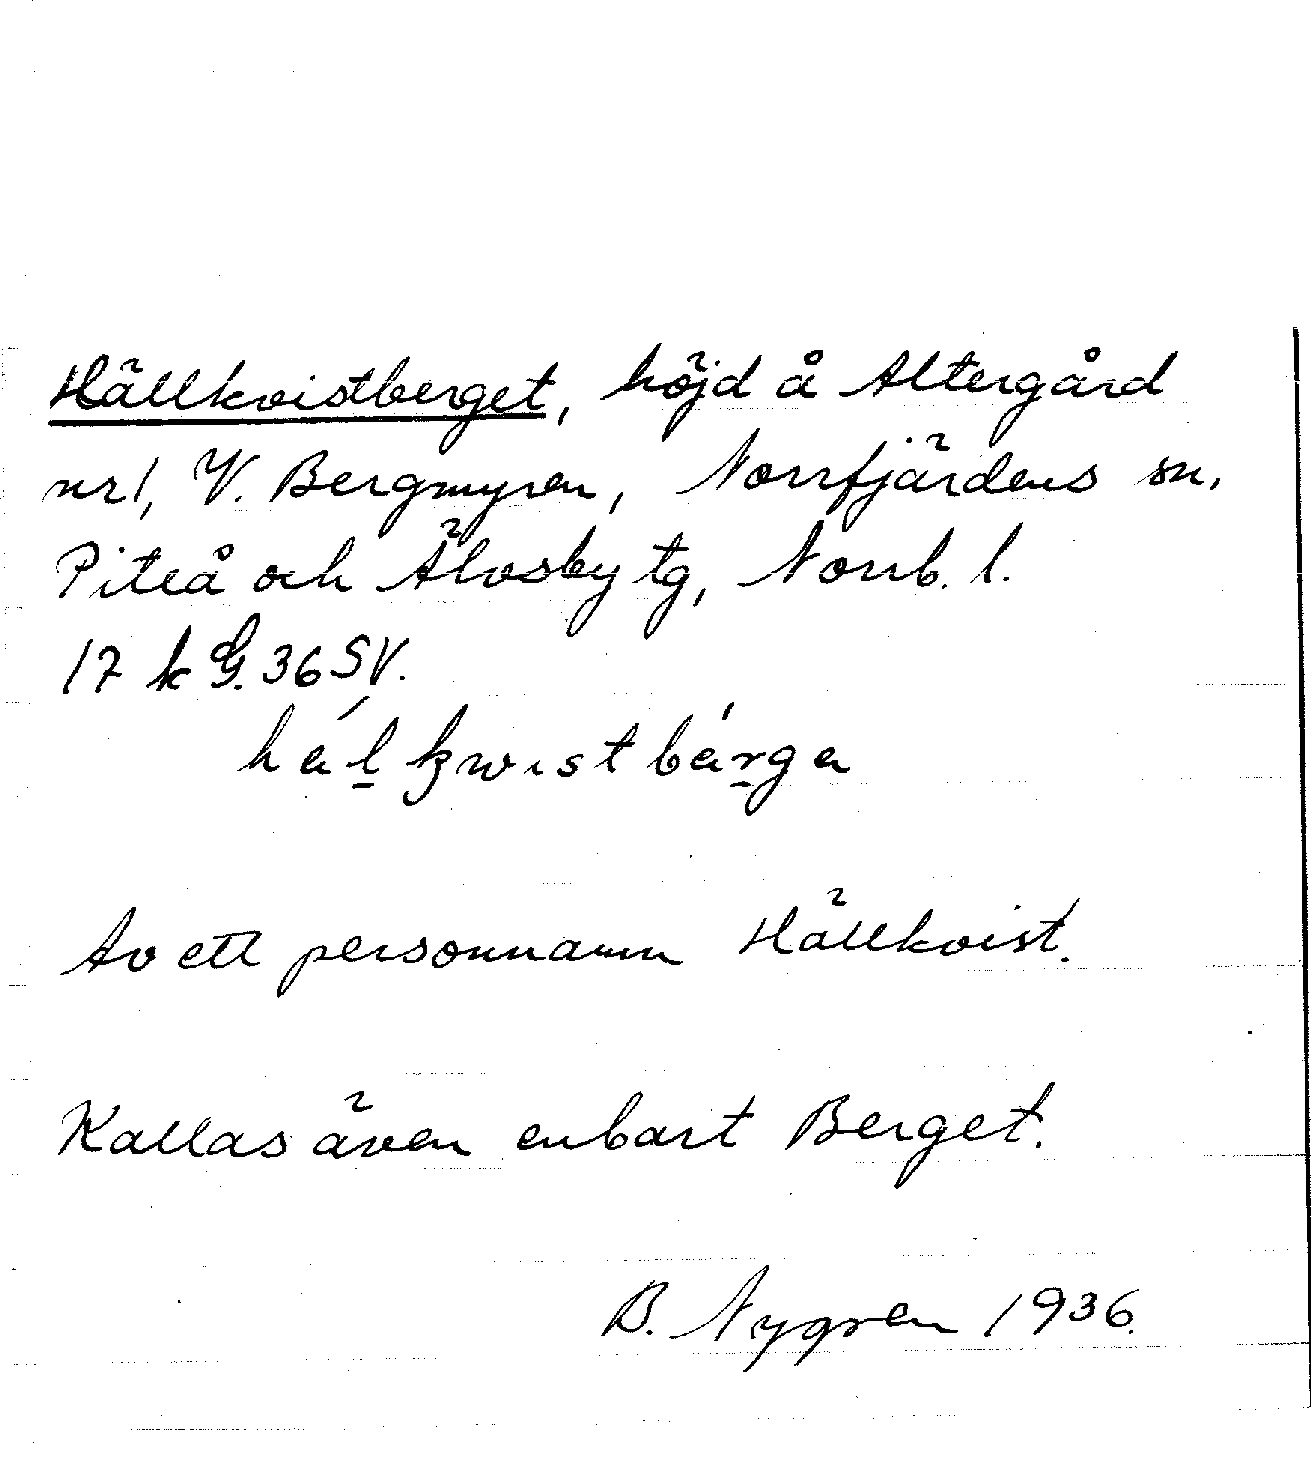 Hällkvistberget, höjd å Altergård
nr 1, V. Bergmyren, Norrfjärdens sn,
Piteå och Älvsby tg, Norrb. l.
17 k G. 36 SV.
hálkwistbárga
Av ett personnamn Hällkvist.
Kallas även enbart Berget.
B. Nygren 1936.